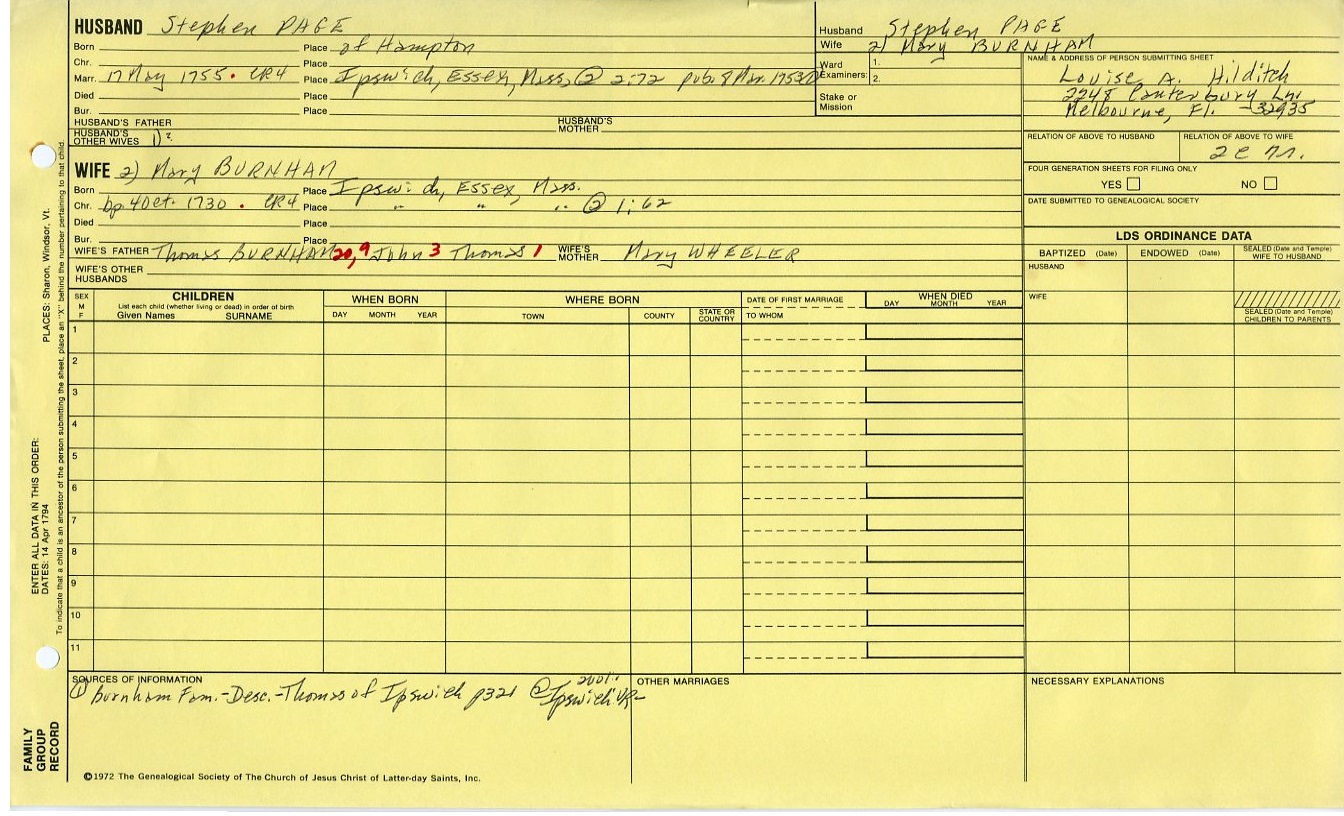 HUSBAND Stephen PAGE
Born Place of Hampton
Chr. Place
Marr. 17 May 1755. CR4 Place Ipswich, Essex, Mass. @ 2:72 pub. 8 Mar. 1753
Died Place
Bur. Place
HUSBAND'S FATHER HUSBAND'S MOTHER
HUSBAND'S OTHER WIVES 1) ?
Husband Stephen PAGE
Wife 2) Mary BURNHAM
Ward 1.
Examiners: 2.
Stake or Mission
NAME & ADDRESS OF PERSON SUBMITTING SHEET
Louise A. Hilditch
2248 Canterbury Ln.
Melbourne, Fl. 32935
RELATION OF ABOVE TO HUSBAND RELATION OF ABOVE TO WIFE
FOUR GENERATION SHEETS FOR FILING ONLY
YES NO
DATE SUBMITTED TO GENEALOGICAL SOCIETY
WIFE 2) Mary BURNHAM
Born Place Ipswich, Essex, Mass.
Chr. bp. 4 Oct. 1730 . CR4 Place " " " @ 1:62
Died Place
Bur. Place
WIFE'S FATHER Thomas BURNHAM 20,9 John 3 Thomas 1 WIFE'S MOTHER Mary WHEELER
WIFE'S OTHER HUSBANDS
LDS ORDINANCE DATA
BAPTIZED (Date) ENDOWED (Date) SEALED (Date and Temple) WIFE TO HUSBAND
HUSBAND
WIFE
SEALED (Date and Temple) CHILDREN TO PARENTS
SEX M F
CHILDREN
List each child (whether living or dead) in order of birth
Given Names SURNAME
WHEN BORN
DAY MONTH YEAR
WHERE BORN
TOWN COUNTY STATE OR COUNTRY
DATE OF FIRST MARRIAGE
TO WHOM
WHEN DIED
DAY MONTH YEAR
1
2
3
4
5
6
7
8
9
10
11
SOURCES OF INFORMATION
① Burnham Fam.-Desc.-Thomas of Ipswich p321 @ Ipswich VR-
OTHER MARRIAGES
NECESSARY EXPLANATIONS
©1972 The Genealogical Society of The Church of Jesus Christ of Latter-day Saints, Inc.
PLACES: Sharon, Windsor, Vt.
ENTER ALL DATA IN THIS ORDER:
DATES: 14 Apr 1794
To indicate that a child is an ancestor of the person submitting the sheet, place an "X" behind the number pertaining to that child.
FAMILY GROUP RECORD